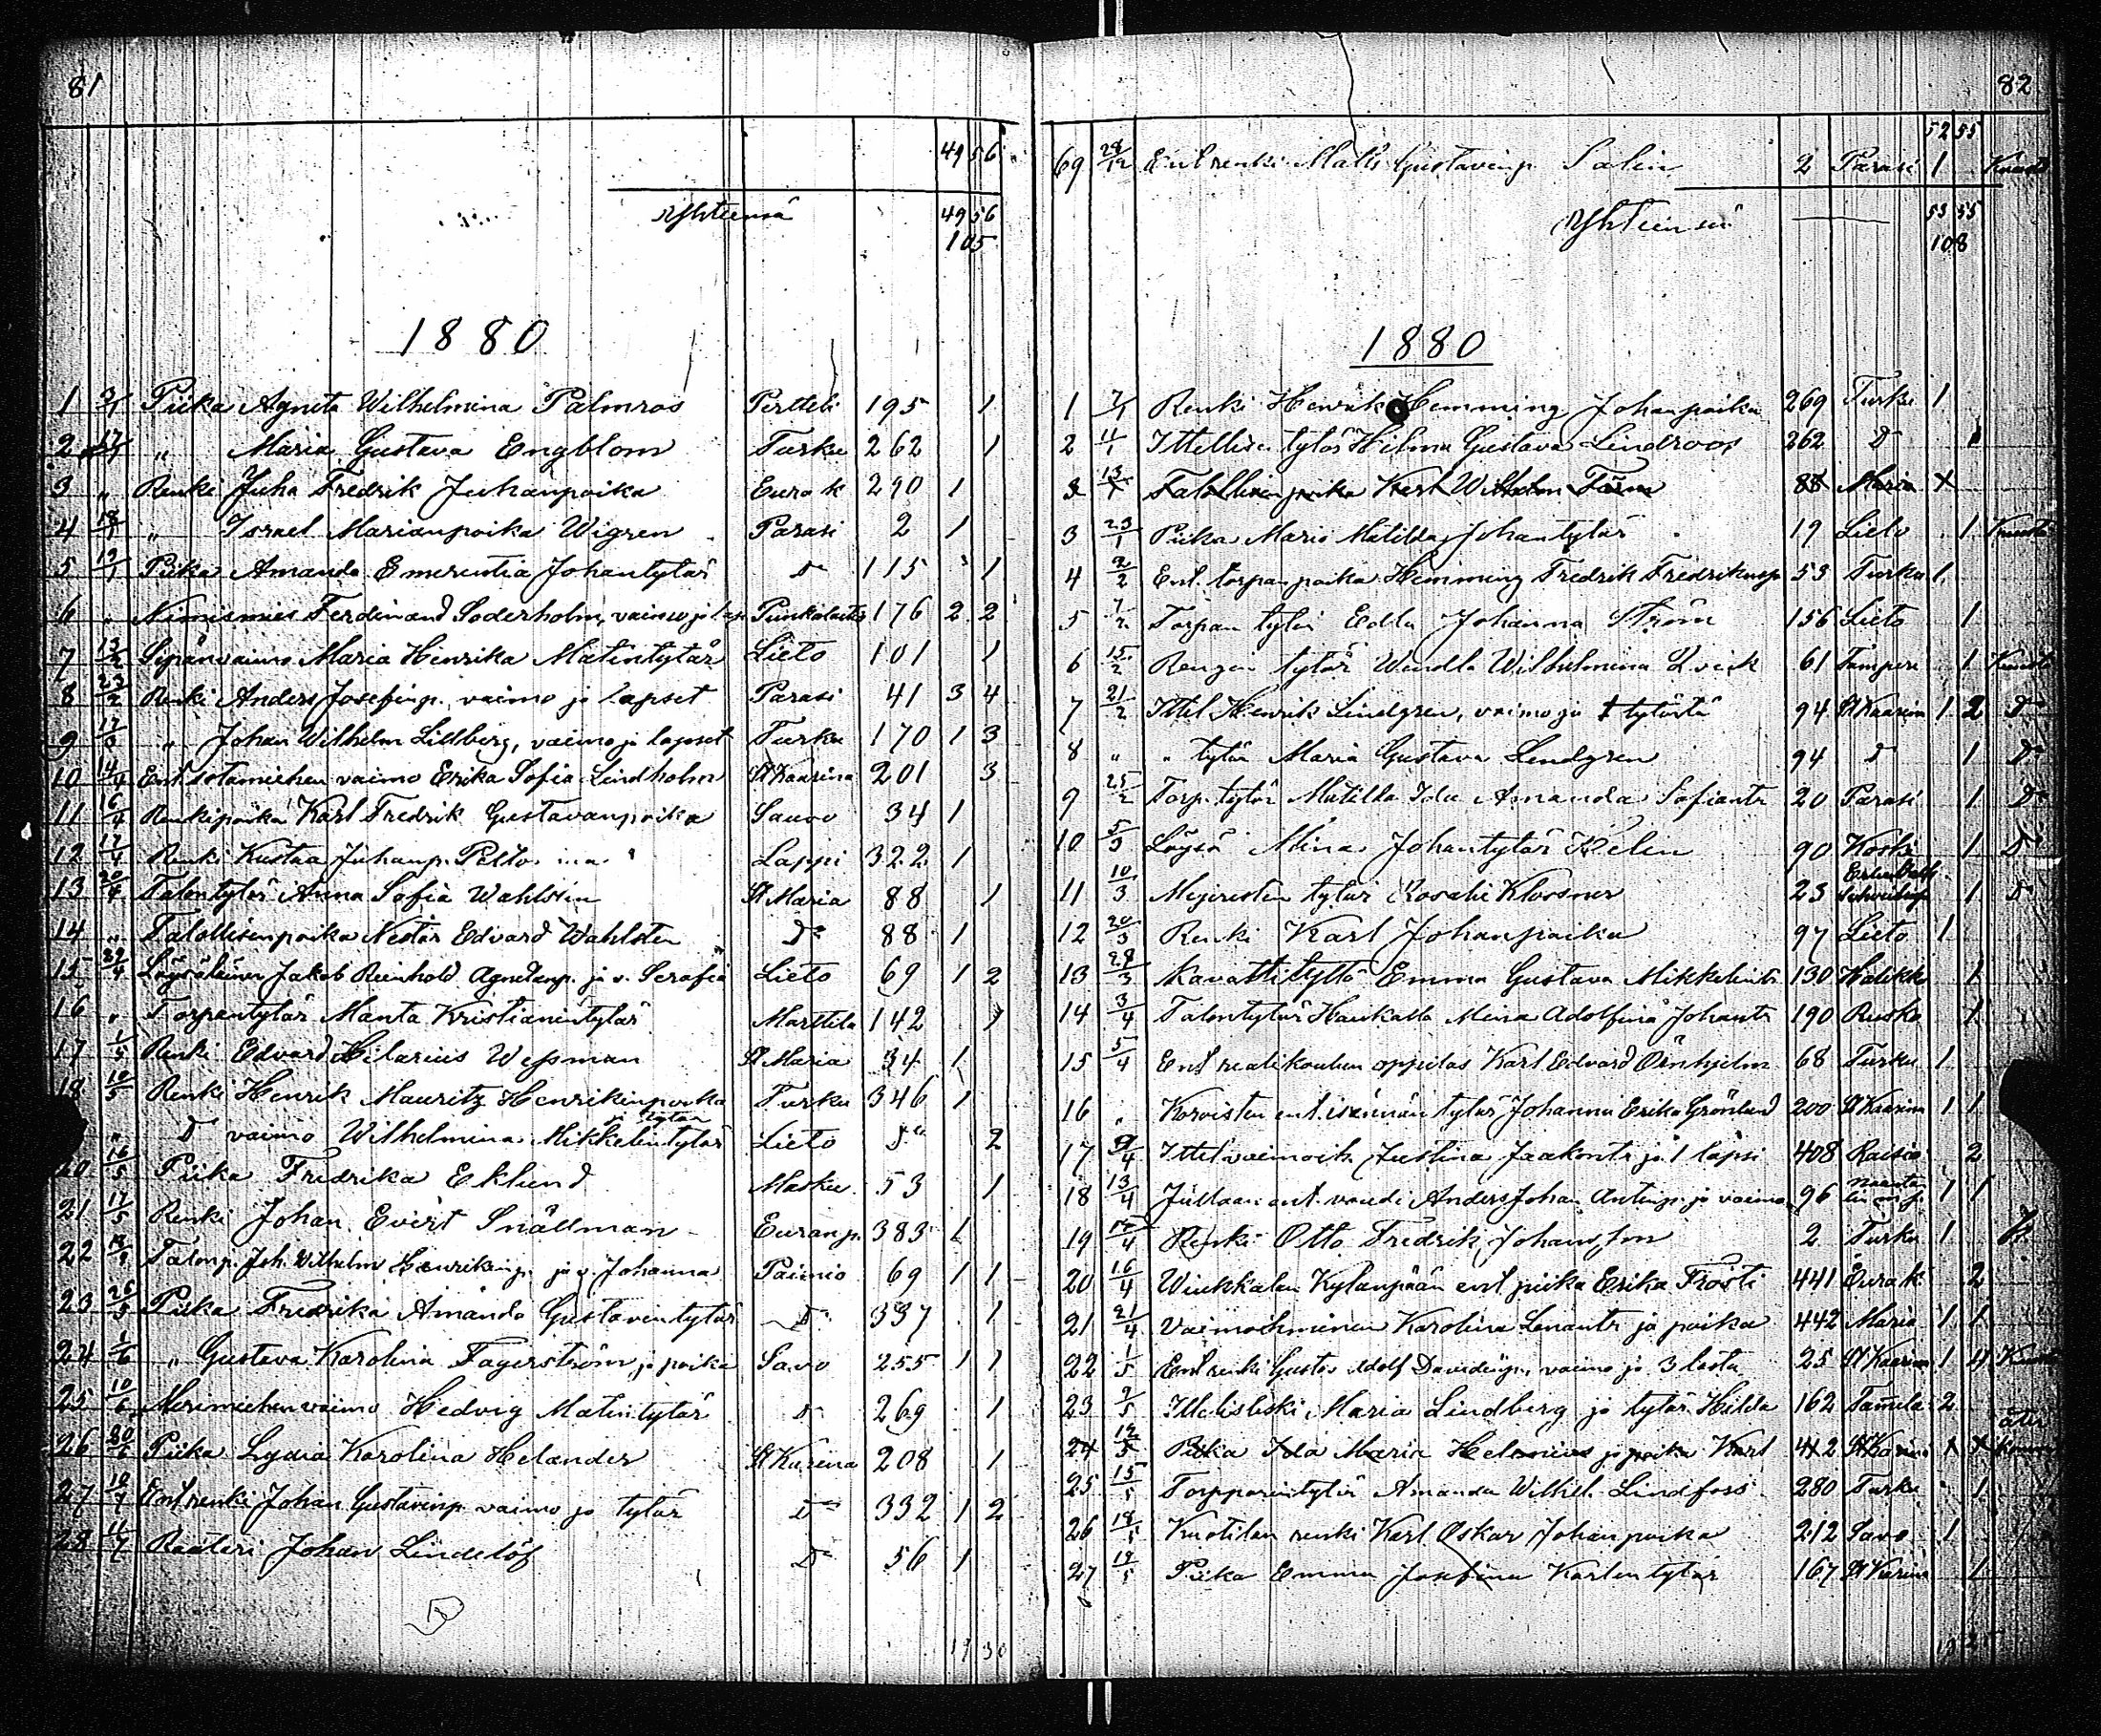 81
49 56
Yhteensä 49 56
105
1880
1 3/1 Piika Agneta Wilhelmina Palmros Pertteli 195 1
2 17/1 " Maria Gustava Engblom Turku 262 1
3 " Renki Juha Fredrik Juhanpoika Eurak 290 1
4 18/1 " Israel Marianpoika Wigren Parasi 2 1
5 19/1 Piika Amanda Emerentia Johantytär Do 115 1
6 " Nimismies Ferdinand Söderholm, vaimo ja laps Punkalaitio 176 2 2
7 13/2 Sepänvaimo Maria Henrika Matintytär Lieto 101 1
8 23/2 Renki Anders Josefinp. vaimo ja lapset Parasi 41 3 4
9 17/3 " Johan Wilhelm Lillberg, vaimo ja lapset Turku 170 1 3
10 14/4 Ent sotamiehen vaimo Erika Sofia Lindholm St Kaarina 201 3
11 16/4 Renkipoika Karl Fredrik Gustavanpoika Sauvo 34 1
12 17/4 Renki Kustaa Juhanp. Lappi 322 1
13 20/4 Talontytär Anna Sofia Wahlsten St Maria 88 1
14 " Talollisenpoika Nestor Edvard Wahlsten Do 88 1
15 29/4 Löysäläinen Jakob Reinhold Agnetanp. ja v. Serafia Lieto 69 1 2
16 " Torpantytär Manta Kristianintytär Marttila 142 1
17 1/5 Renki Edvard Hilarius Wessman St Maria 34 1
18 10/5 Renki Henrik Mauritz Henrikinpoika Turku 346 1
" D vaimo Wilhelmina Mikkelintytär ja tytär Lieto Do 2
20 16/5 Piika Fredrika Eklund Masku 53 1
21 17/5 Renki Johan Evert Snällman Euranp. 383 1
22 Talonp. Joh. Wilhelm Henrikinp. ja v. Johanna Paimio 69 1 1
23 26/5 Piika Fredrika Amanda Gustavintytär Do 337 1
24 1/6 " Gustava Karolina Fagerström ja poika Savo 255 1 1
25 10/6 Merimiehen vaimo Hedvig Matintytär Do 269 1
26 30/6 Piika Lydia Karolina Helander St Karina 208 1
27 10/7 Ent renki Johan Gustavinp. vaimo ja tytär Do 332 1 2
28 11/7 Räätäri Johan Lindelöf Do 56 1
19 30
82
52 55
69 28/12 Ent renki Matts Gustavinp. Salin 2 Parasi 1
Yhteensä 53 55
108
1880
1 7/1 Renki Henrik Hemming Johanpoika 269 Turku 1
2 11/1 Ittellisen tytär Hilma Gustava Lindroos 262 D 1
3 13/1 Talollisen poika Karl Wilhelm 88 Maria
3 23/1 Piika Maria Matilda Johantytär 19 Lieto 1
4 2/2 Ent. torpan poika Hemming Fredrik Fredrikinp 53 Turku 1
5 7/2 Torpan tytär Edla Johanna Ström 156 Lieto 1
6 15/2 Rengin tytär Wendla Wilhelmina Qvick 61 Tampere 1
7 21/2 Ittel Henrik Lindgren, vaimo ja 1 tytärtä 94 St Kaarina 1 2 Do
8 " " tytär Maria Gustava Lendgren 94 D 1 Do
9 25/2 Torp. tytär Matilda Ida Amanda Sofiantr 20 Parasi 1 Do
10 5/3 Löysä Mina Johantytär Helin 90 Koski 1 Do
11 10/3 Mejeristen tytär Rosalie Klossner 23 1 D
12 20/3 Renki Karl Johanpoika 97 Lieto 1
13 28/3 Kasatti tyttö Emma Gustava Mikkelintr 130 Halikko 1
14 3/4 Talontytär Haukalla Mina Adolfina Johantr 190 Rusko 1
15 5/4 Ent realikoulun oppilas Karl Edvard Örnhjelm 68 Turku 1
16 " Korvisten ent. isännän tytär Johanna Erika Grönlund 200 St Kaarina 1 1
17 9/4 Ittel vaimoih. Justina Jaakontr ja 1 lapsi 408 Raisio 2
18 13/4 ent. voudi Anders Johan Antinp. ja vaimo 96 Naantalin m p. 1 1
19 Renki Otto Fredrik Johansson 2 Turku 1
20 16/4 Kylänpään ent piika Erika Frosti 441 Eurak 2
21 21/4 Vaimoihminen Karolina Lenantr ja poika 442 Maria 1 1
22 1/5 Ent renki Gustos Adolf Davidinp. vaimo ja 3 lasta 25 St Kaarina 1 4
23 2/5 Itteliski Maria Lindberg ja tytär Hilda 162 Tammela 2
24 12/5 Piika Ida Maria Helenius ja poika Karl 442 St Karina
25 15/5 Torpparintytär Amanda Wilhel. Lindfors 280 Turku 1
26 18/5 Knotilan renki Karl Oskar Johanpoika 212 Savo 1
27 19/5 Piika Emma Josefina Karlentytär 167 St Karina 1